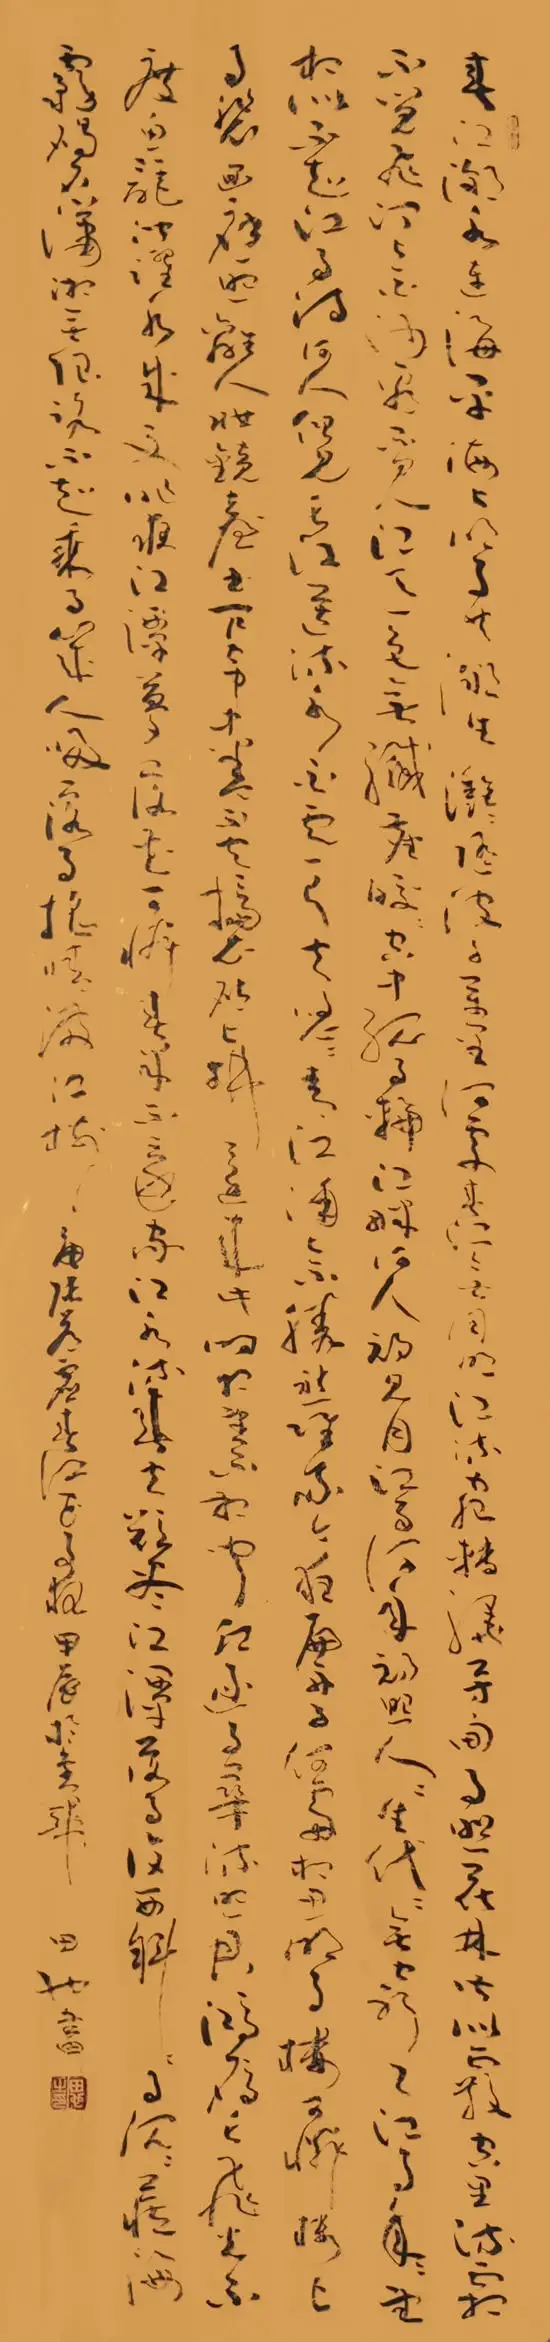 春江潮水連海平海上明月共潮生灩灩隨波千萬里何處春江無月明江流宛轉繞芳甸月照花林皆似霰空里流霜
不覺飛汀上白沙看不見江天一色無纖塵皎皎空中孤月輪江畔何人初見月江月何年初照人人生代代無窮已江月年年望
相似不知江月待何人但見長江送流水白雲一片去悠悠青楓浦上不勝愁誰家今夜扁舟子何處相思明月樓可憐樓上
月裴回應照離人妝鏡臺玉戶簾中卷不去搗衣砧上拂還來此時相望不相聞願逐月華流照君鴻雁長飛光不
度魚龍潛躍水成文昨夜江潭夢落花可憐春半不還家江水流春去欲盡江潭落月復西斜斜月沉沉藏海
霧碣石瀟湘無限路不知乘月幾人歸落月搖情滿江樹 張若虛春江花月夜甲辰於京華 田地書